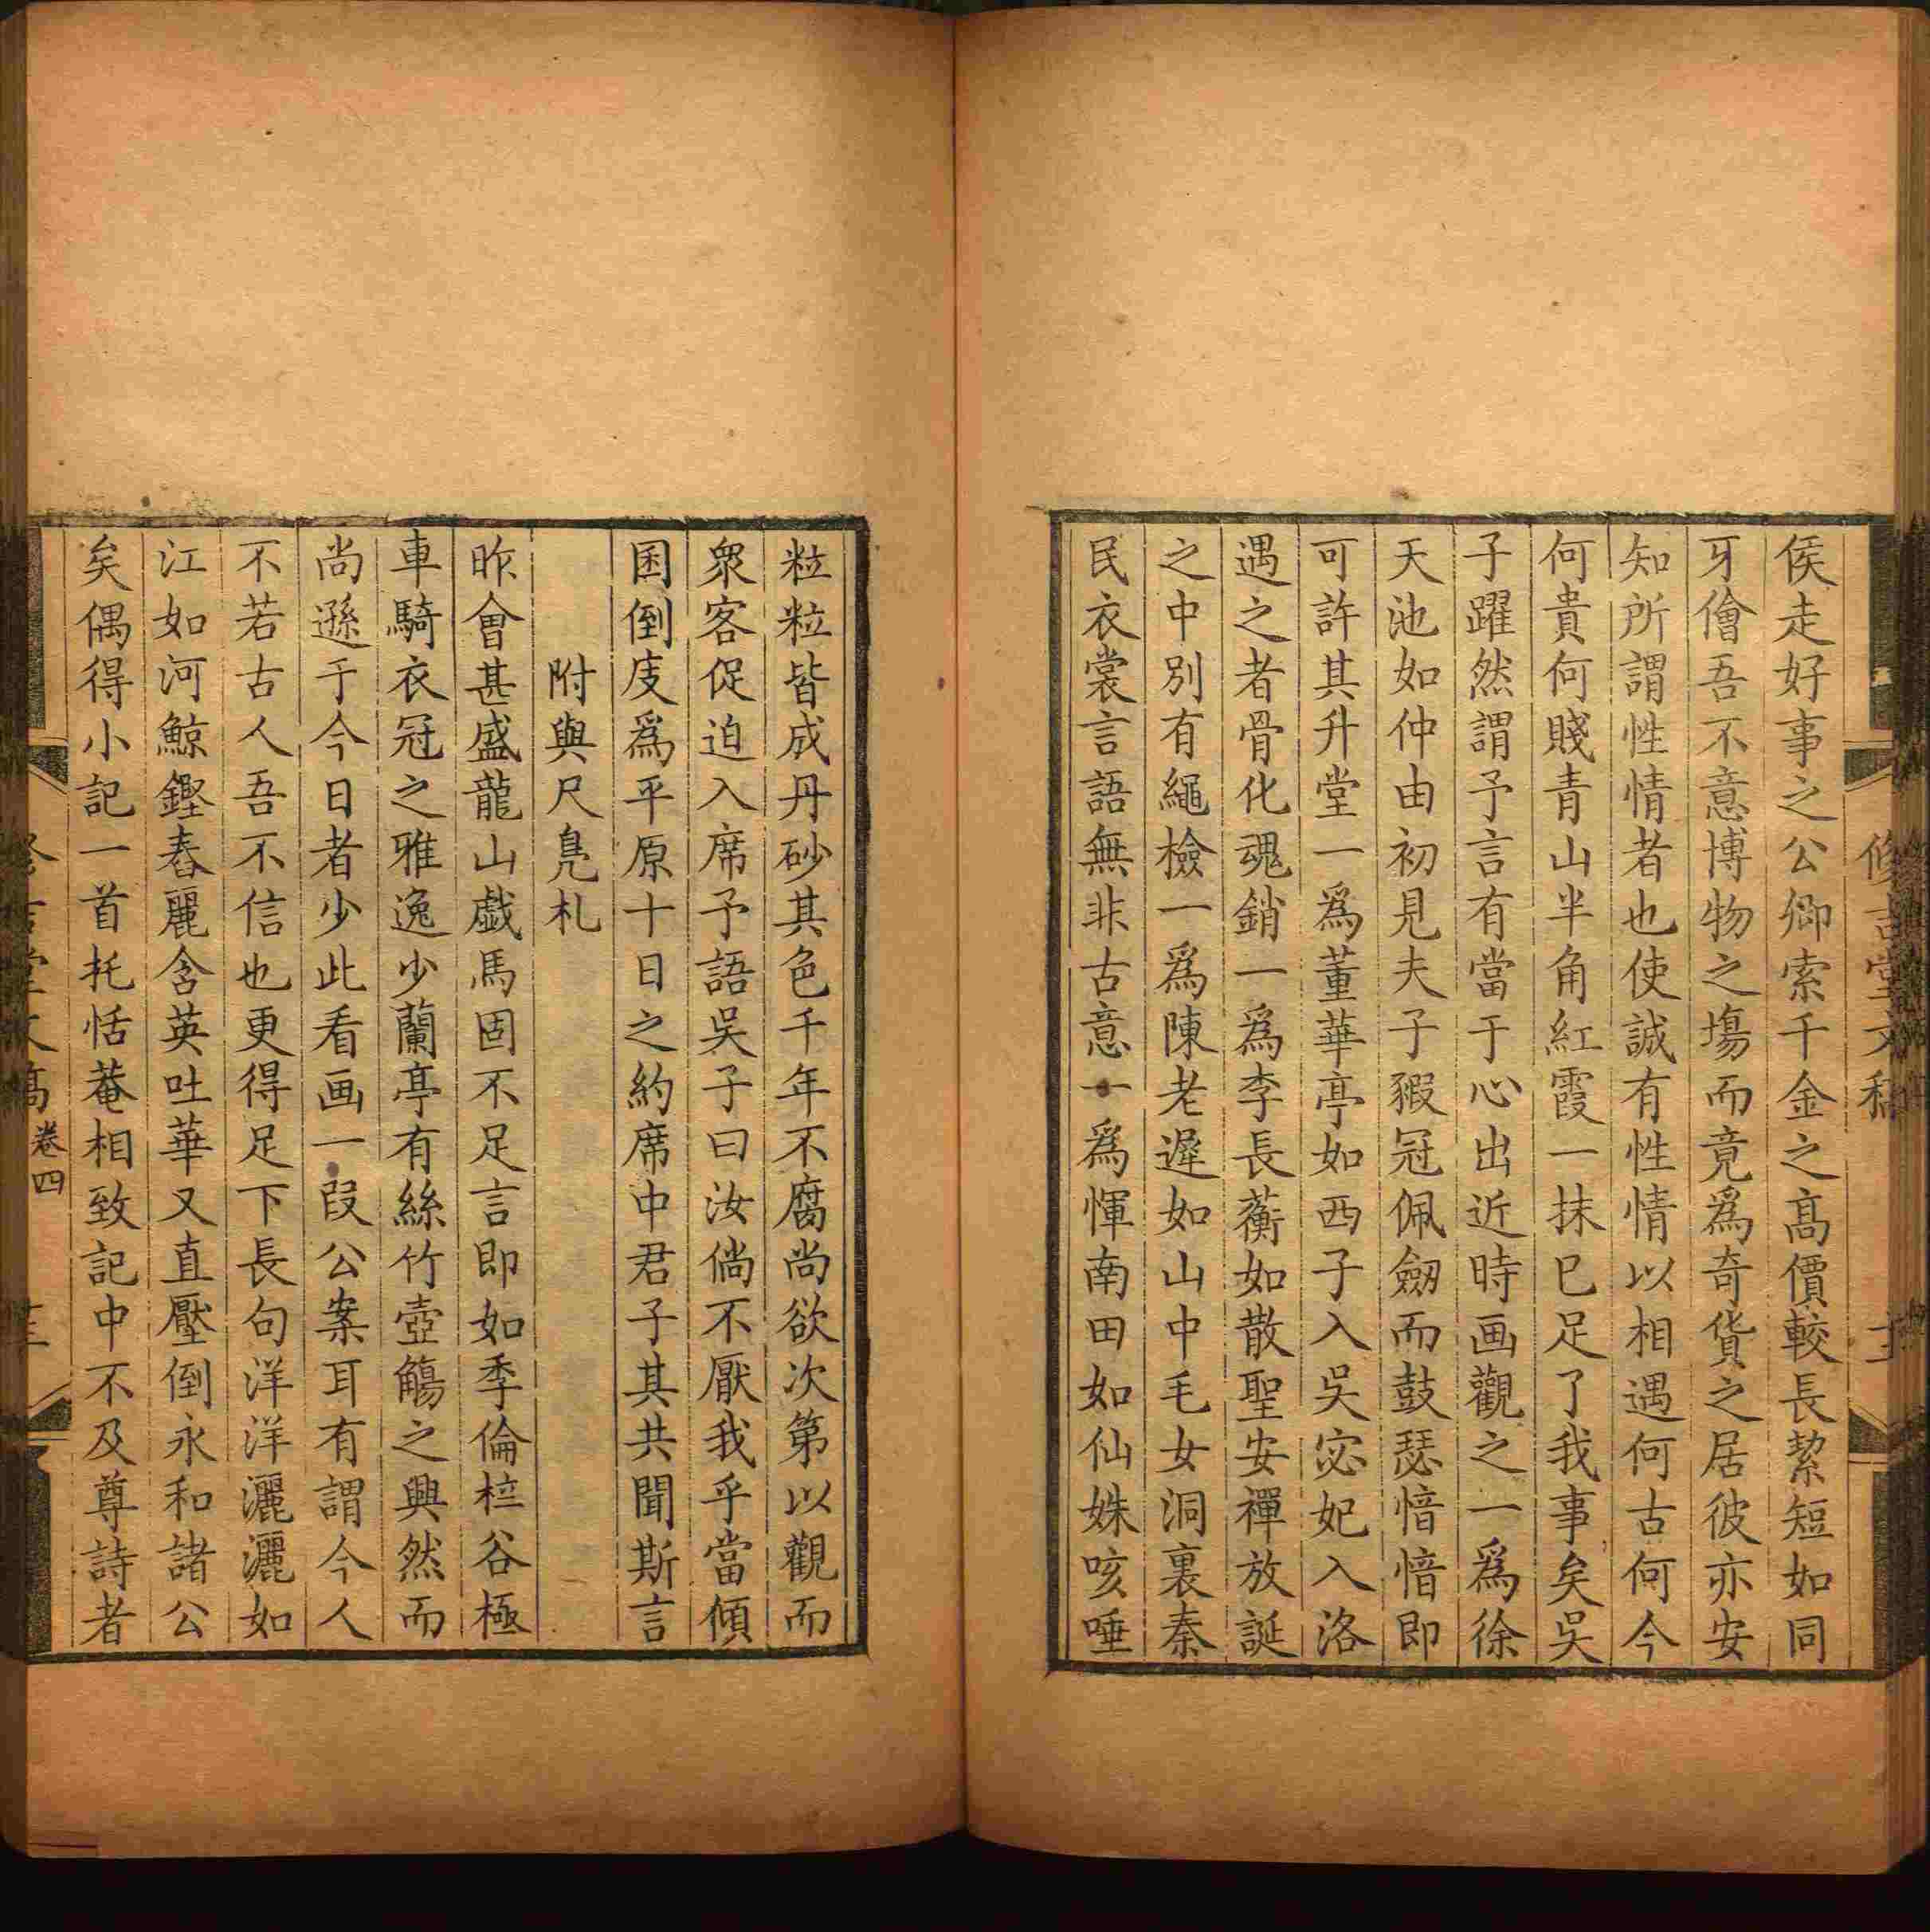 修吉堂文稿
侯走好事之公卿索千金之高價較長絜短如同
牙儈吾不意博物之塲而竟爲奇貨之居彼亦安
知所謂性情者也使誠有性情以相遇何古何今
何貴何賤青山半角紅霞一抹已足了我事矣吳
子躍然謂予言有當于心出近時画觀之一爲徐
天池如仲由初見夫子豭冠佩劒而鼓瑟愔愔即
可許其升堂一爲董華亭如西子入吳宓妃入洛
遇之者骨化魂銷一爲李長蘅如散聖安禪放誕
之中別有繩檢一爲陳老遲如山中毛女洞裏秦
民衣裳言語無非古意一爲惲南田如仙姝咳唾
粒粒皆成丹砂其色千年不腐尚欲次第以觀而
衆客促迫入席予語吳子曰汝倘不厭我乎當傾
囷倒庋爲平原十日之約席中君子其共聞斯言
附與尺鳧札
昨會甚盛龍山戲馬固不足言即如季倫梓谷極
車騎衣冠之雅逸少蘭亭有絲竹壺觴之興然而
尚遜于今日者少此看画一叚公案耳有謂今人
不若古人吾不信也更得足下長句洋洋灑灑如
江如河鯨鏗春麗含英吐華又直壓倒永和諸公
矣偶得小記一首托恬菴相致記中不及尊詩者
卷四